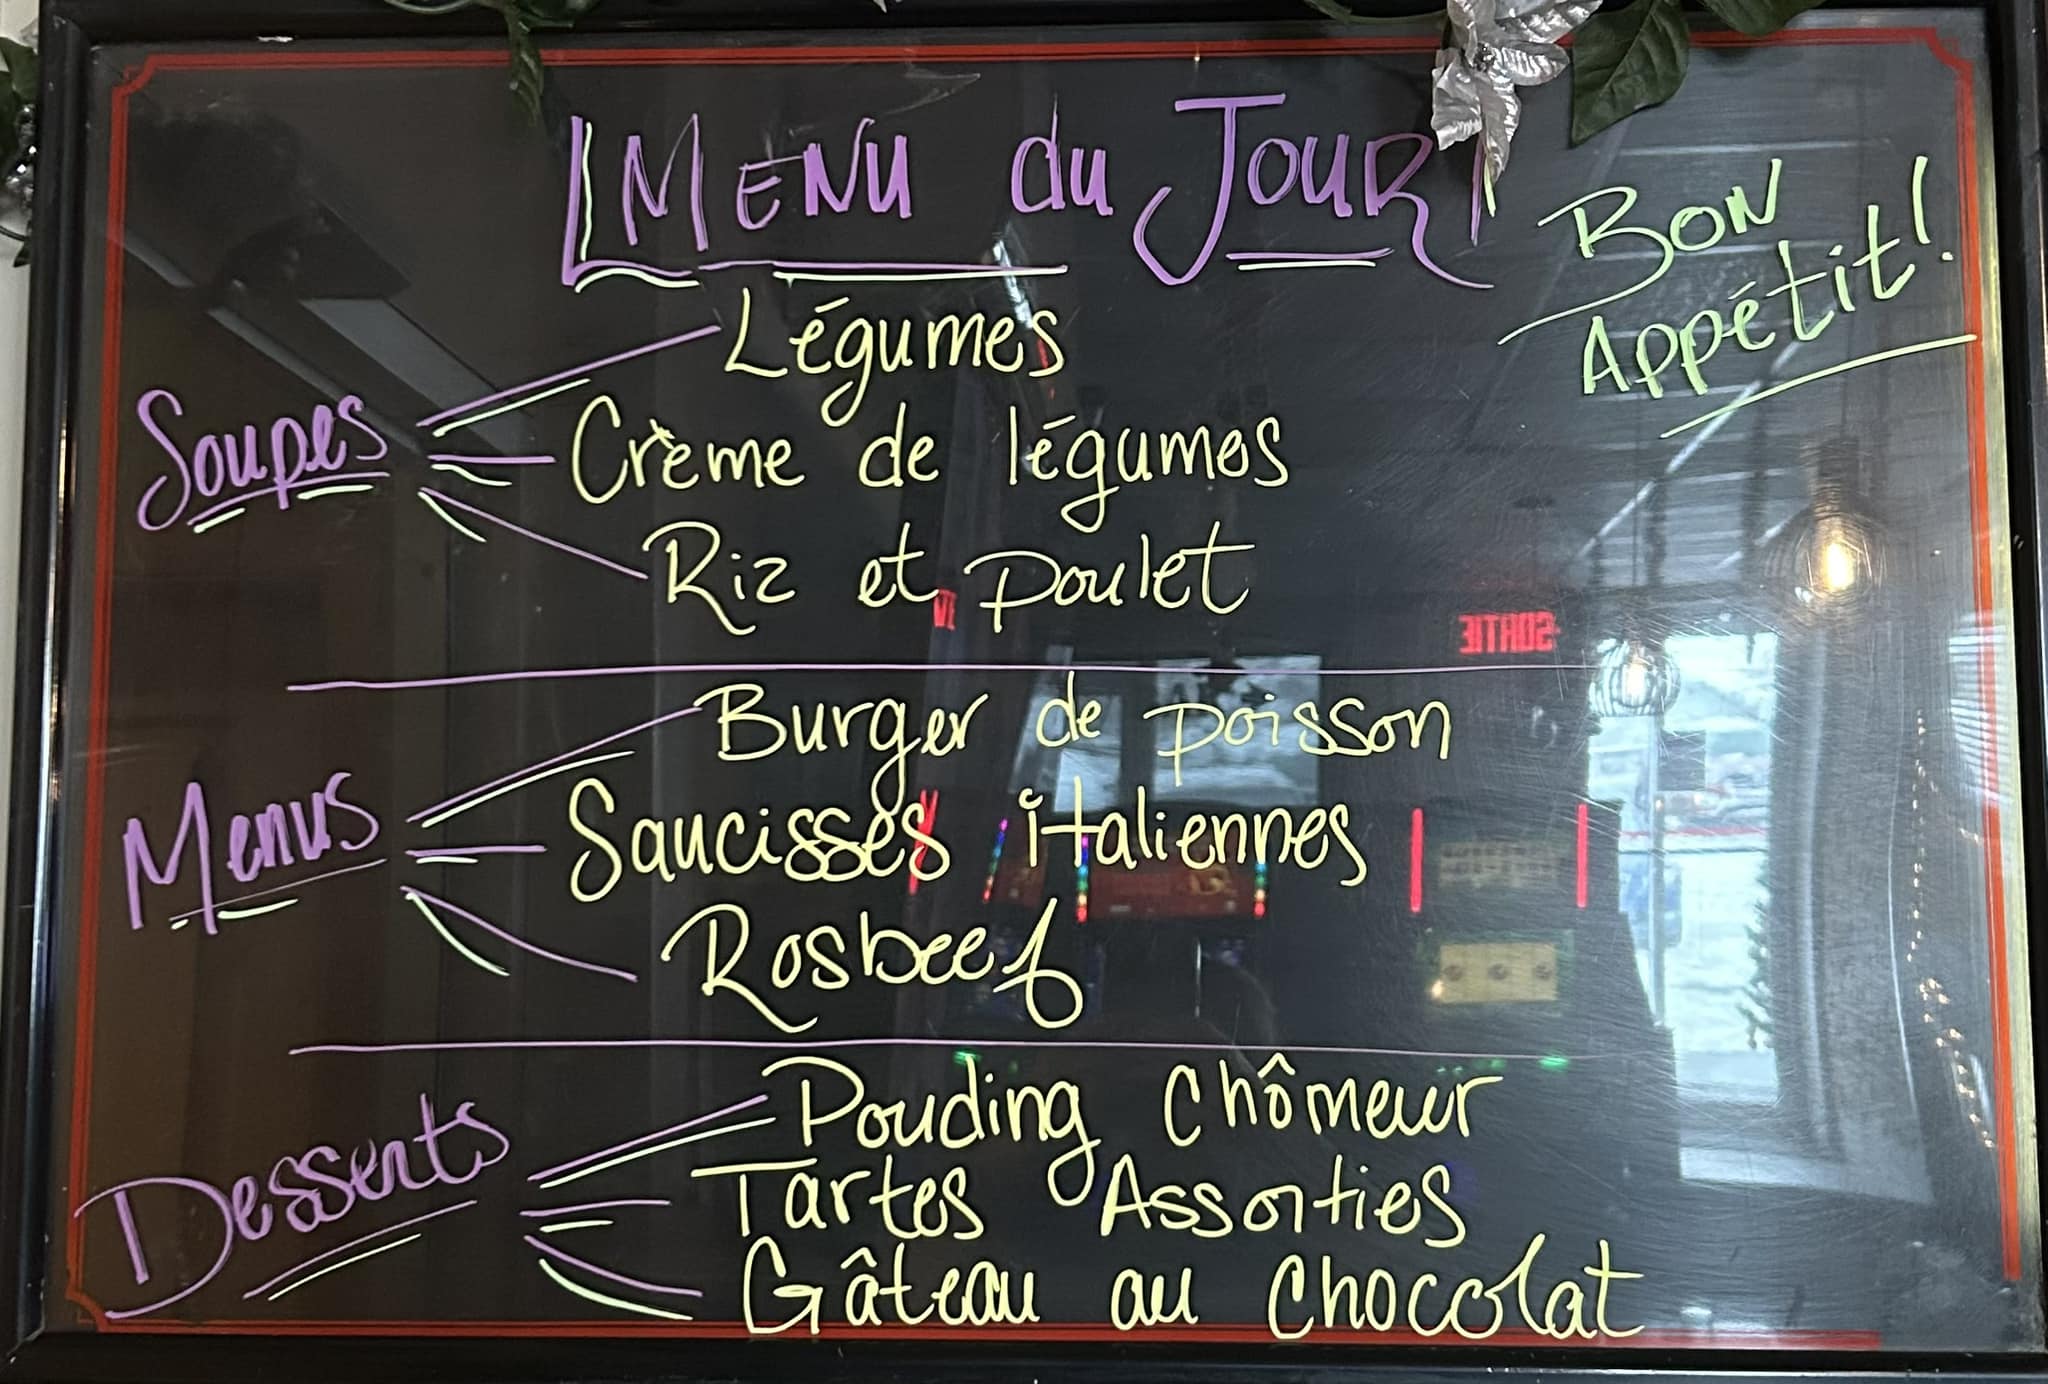 Menu du Jour
Bon
Appétit!
Soupes
Légumes
Crème de légumes
Riz et poulet
SORTIE
Menus
Burger de poisson
Saucisses italiennes
Rosbeef
Desserts
Pouding chômeur
Tartes Assorties
Gâteau au chocolat